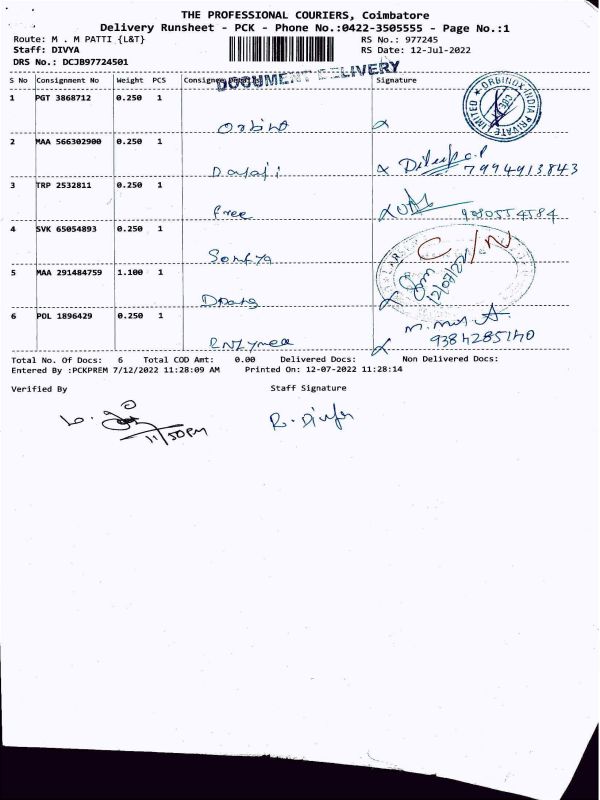 THE PROFESSIONAL COURIERS, Coimbatore
Delivery Runsheet - PCK - Phone No.:0422-3505555 - Page No.:1
Route: M . M PATTI {L&T} RS No.: 977245
Staff: DIVYA RS Date: 12-Jul-2022
DRS No.: DCJB97724501
DOCUMENT DELIVERY
S No Consign No Weight PCS Consignee Signature
1 PGT 3868712 0.250 1
ORBINOX INDIA PRIVATE LIMITED
2 MAA 566302900 0.250 1
7994913843
3 TRP 2532811 0.250 1
free 9080554584
4 SVK 65054893 0.250 1
C/N
12/07/22
5 MAA 291484759 1.100 1
6 POL 1896429 0.250 1
9384285140
Total No. Of Docs: 6 Total COD Amt: 0.00 Delivered Docs: Non Delivered Docs:
Entered By :PCKPREM 7/12/2022 11:28:09 AM Printed On: 12-07-2022 11:28:14
Verified By Staff Signature
11/50PM